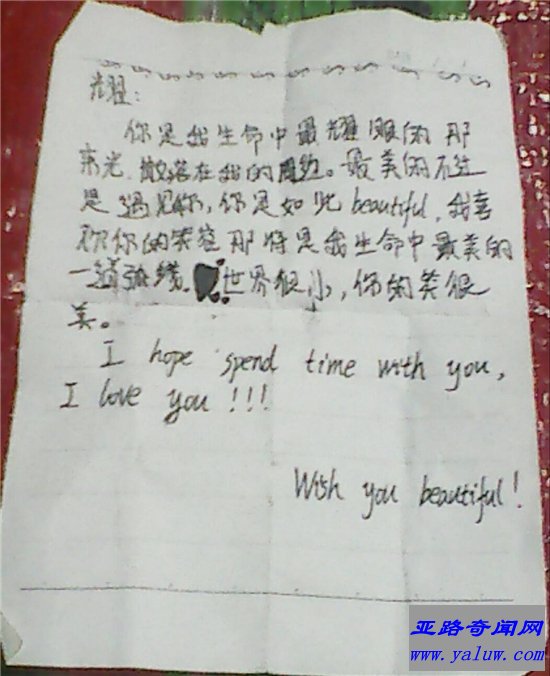 耀:
你是我生命中最耀眼的那
束光,散落在我的周边。最美的不过
是遇见你,你是如此beautiful,我喜
欢你的笑容那将是我生命中最美的
一道弧线。世界很小,你的笑很
美。
I hope spend time with you,
I love you!!!
Wish you beautiful!
亚路奇闻网
www.yaluw.com